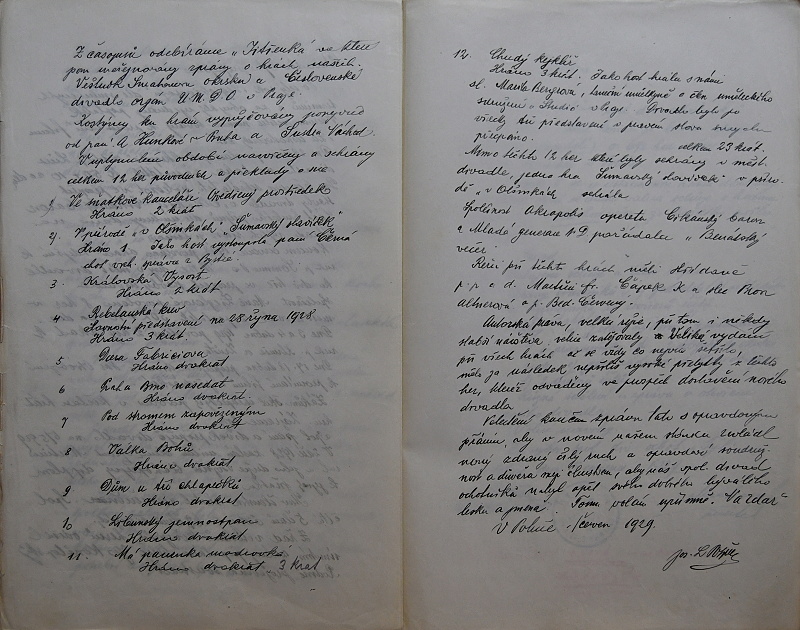 Z časopisů odebíráme „Jitřenka" ve které
jsou uveřejňovány zprávy o hrách našich.
Věstník Smíchovova okrsku a Českoslovenké
divadlo orgán Ú.M.D.O. v Praze.
Kostýmy ku hrám vypůjčovány ponejvíce
od paní A. Hunkové v Praha a Sudka Náchod.
V uplynulém období nacvičeny a sehrány
celkem 12 her původních a překlady a sice
1. Ve sňatkové kanceláři Ojedinělý prostředek
Hráno 2 krát
2. V přírodě „v Olšinkách" „Šumavský slavíček"
Hráno 1. Jako host vystoupila paní Černá
choť vrch. správce z
3. Královská Výsost
Hráno 2 krát
4 Rebelantská krev
Slavnostní představení na 28 října 1928
Hráno 3 krát.
5 Dcera Fabriciova
Hráno dvakrát
6 Praha Brno nasedat
Hráno dvakrát.
7 Pod stromem zapovězeným
Hráno dvakrát
8 Válka Bohů
Hráno dvakrát
9 Dům u tří chlapečků
Hráno dvakrát
10 Libunský jemnostpán
Hráno dvakrát
11. Má panenka modrooká
Hráno dvakrát 3 krát
12. Chudý kejklíř
Hráno 3 krát. Jako host hrála s námi
sl. Marta Bergrova, umělkyně a člen uměleckého
sdružení „Studio" v Praze. Divadlo bylo po
všecky tři představení v pravém slova smyslu
přeplněno.
celkem 23 krát.
Mimo těchto 12 her které byly sehrány v měst.
divadle, jedna hra „Šumavský slavíček" v příro-
dě „v Olšinkách" sehrála
Společnost Akropolis opereta Cikánský baron
a Mladé generace N.D pořádalec „Benátský
večer"
Režii při těchto hrách měli střídavě
p.p. a d. Martini fr. Čapek K a slec
Altnerová a p. Bed. Červený.
Autorská práva, velká režie, při tom i někdy
slabší návštěva, velice zatěžovaly a Veliká vydání
při všech hrách ač se vždy co nejvíc šetřilo,
mělo za následek nepříliš vysoké přebytky z těchto
her, kteréž odváděny ve prospěch dostavení nového
divadla.
Veledění končím zprávu tuto s opravdovým
přáním, aby v novém našem stánku zavládl
nový zdravý čilý ruch a opravdová soudruž-
nost a důvěra mezi členstvem, aby náš spol. divad.
ochotníků nabyl opět svého dobrého bývalého
lesku a jména. Tomu volám upřímně. Na zdar
V Polné, červen 1929
Jos. L.